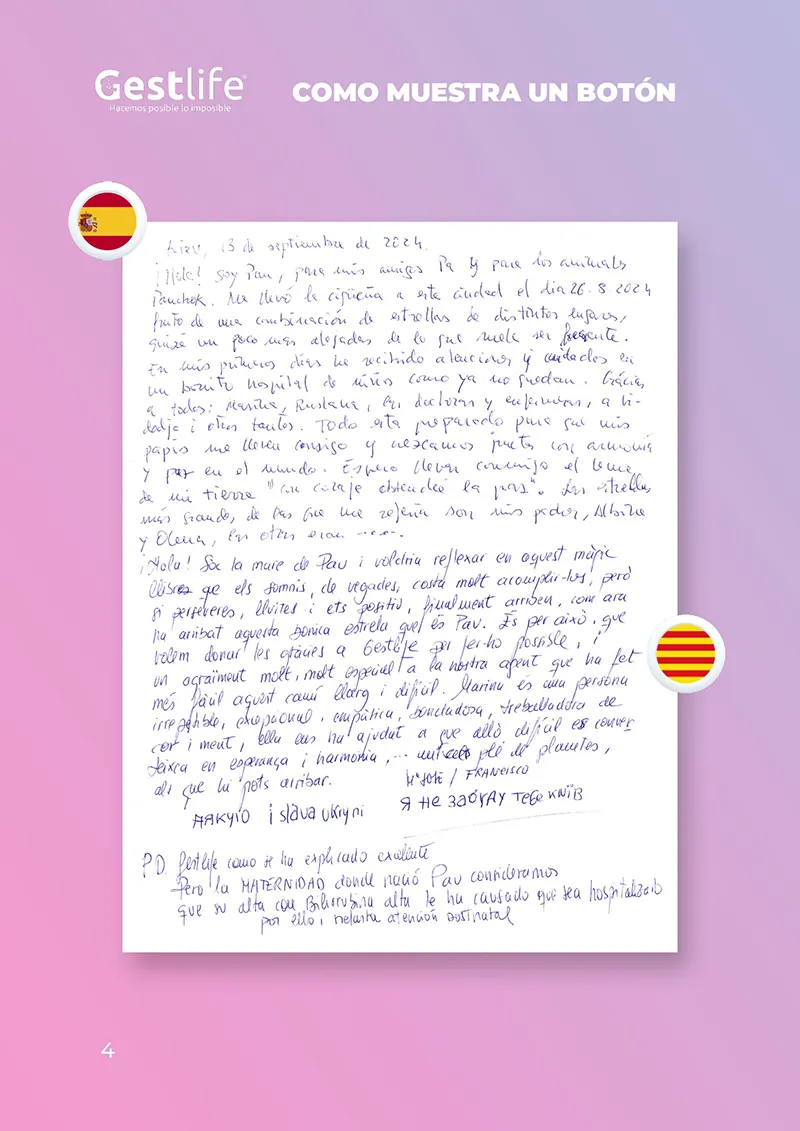 Gestlife
Hacemos posible lo imposible
COMO MUESTRA UN BOTÓN
13 de septiembre de 2024.
¡Hola! Soy Pau, para mis amigos Pa y para los animales
Panchok. Me llevó la cigüeña a esta ciudad el dia 26-8 2024
fruto de una combinación de estrellas de distintos lugares,
quizá un poco más alejadas de lo que suele ser frecuente.
En mis primeros días he recibido atenciones y cuidados en
un bonito hospital de niños como ya no quedan. Gracias
a todos: Ruslana, las doctoras y enfermeras, a
i otros tantos. Todo esta preparado para que mis
papis me lleven consigo y crezcamos juntos con armonía
y paz en el mundo. Espero llevar conmigo el lema
de mi tierra "con coraje obtendré la paz". Las estrellas
más grandes, de las que me son mis padres,
y Olena, las otras eran ......
¡Hola! Sóc la mare de Pau i voldria reflexar en aquest màgic
que els somnis, de vegades, costa molt acomplir-los, però
si perseveres, lluites i ets positiu, finalment arriben, com ara
ha arribat aquesta bonica estrela que és Pau. És per això, que
volem donar les gràcies a Gestlife per fer-ho possible, i
un agraïment molt, molt especial a la nostra agent que ha fet
més fàcil aquest camí llarg i difícil. Marina és una persona
irrepetible, excepcional, empàtica, bondadosa, treballadora de
cor i ment, ella ens ha ajudat a que allò difícil es conver
teixca en esperança i harmonia, ... plé de planetes,
als que hi pots arribar.
Mª JOSÉ / FRANCISCO
ДЯКУЮ i slava ukryni
Я НЕ ЗАБУДУ ТЕБЕ КИЇВ
P.D. Gestlife como se ha explicado excelente
Pero la MATERNIDAD donde nació Pau consideramos
que su alta con Bilirrubina alta le ha causado que sea hospitalizado
por ello, nefasta atención postnatal
4